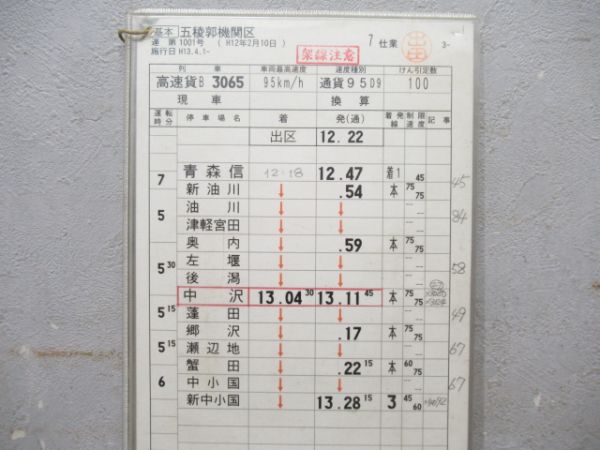 基本 五稜郭機関区 7 仕業 3-
達 第 1001号 ( H12年2月10日 )
施行日 H13.4.1~ 架線注意
列 車 車両最高速度 速度種別 けん引定数
高速貨B 3065 95km/h 通貨95D9 100
現 車 換 算
運転時分 停車場名 着 発(通) 着発線 制限速度 記事
出区 12.22
青森信 12.18 12.47 着1 45
7 45
新油川 ↓ .54 本 75 75
油川 ↓ ↓
5 84
津軽宮田 ↓ ↓
奥内 ↓ .59 本 75 75
左堰 ↓ ↓
5 30 58
後潟 ↓ ↓
中沢 13.04 30 13.11 45 本 75 75
蓬田 ↓ ↓
5 15 49
郷沢 ↓ .17 本 75 75
瀬辺地 ↓ ↓
5 15 67
蟹田 ↓ .22 15 本 60 75
中小国 ↓ ↓
6 67
新中小国 ↓ 13.28 15 3 45 60